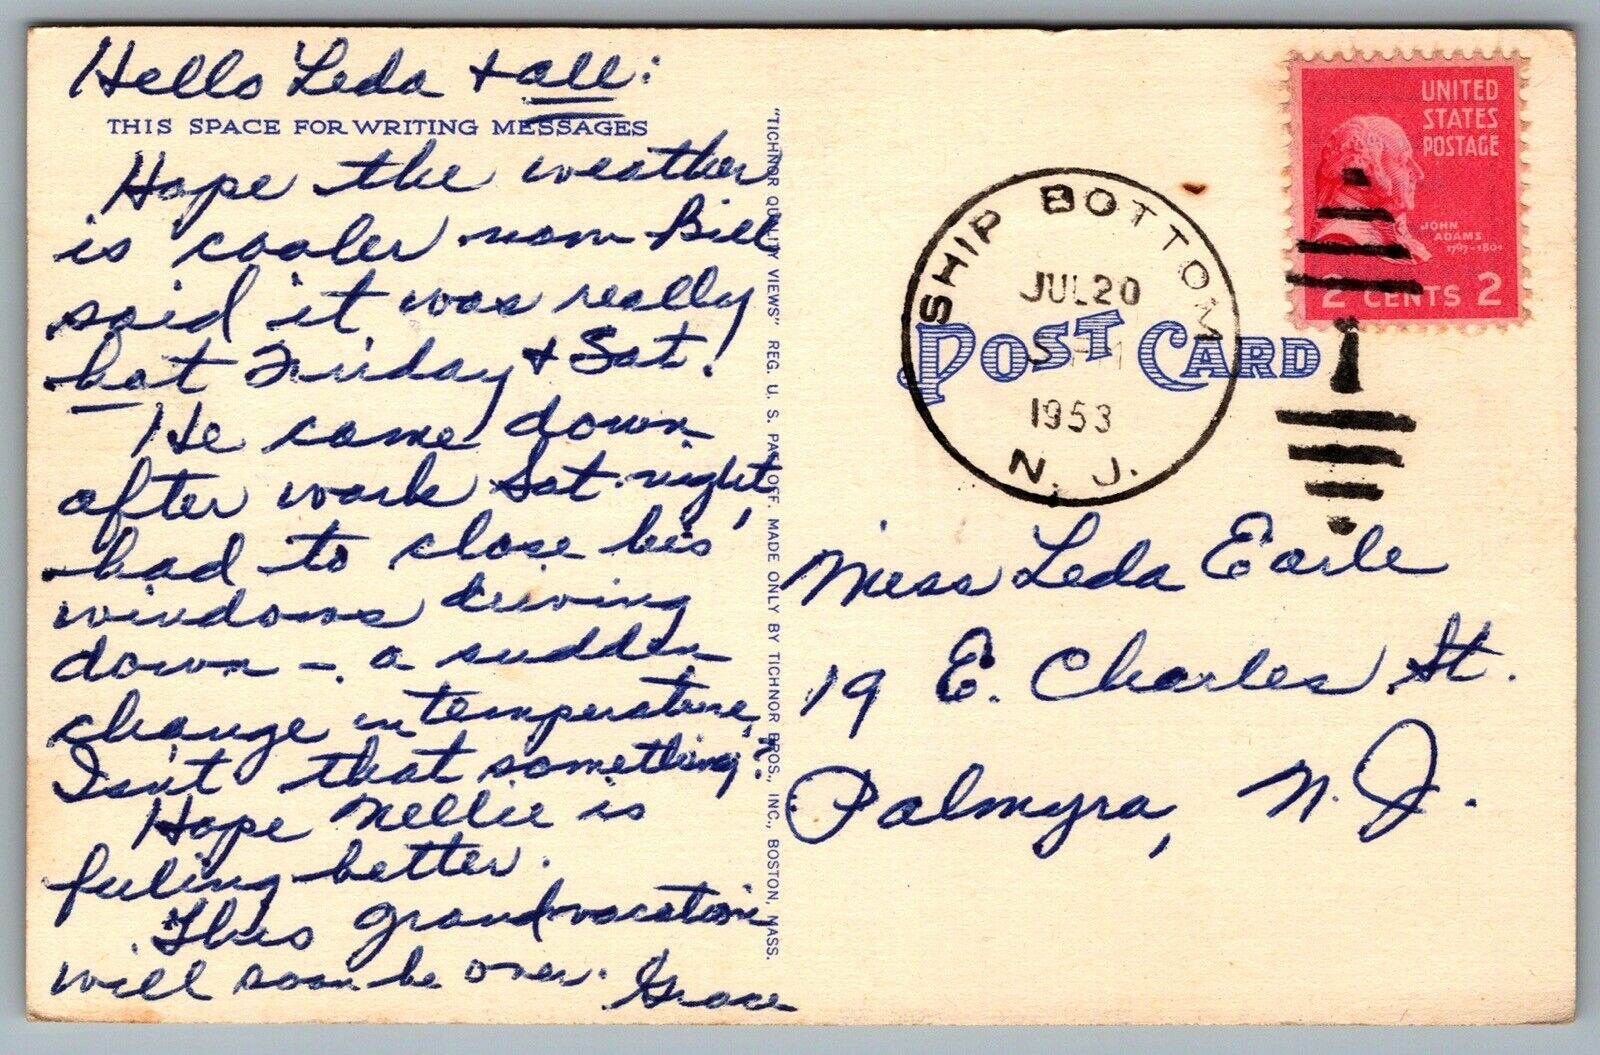 Hello Leda + all:
THIS SPACE FOR WRITING MESSAGES
Hope the weather
is cooler now. Bill
said it was really
hot Friday + Sat!
He came down
after work Sat. night,
had to close his
windows driving
down - a sudden
change in temperature,
Isn't that something?
Hope Nellie is
feeling better.
This grand vacation
will soon be over. Grace
"TICHNOR QUALITY VIEWS" REG. U. S. PAT. OFF. MADE ONLY BY TICHNOR BROS., INC., BOSTON, MASS.
UNITED
STATES
POSTAGE
JOHN
ADAMS
1797-1801
2 CENTS 2
SHIP BOTTOM
JUL 20
1953
N. J.
POST CARD
Miss Leda Earle
19 E. Charles St.
Palmyra, N. J.